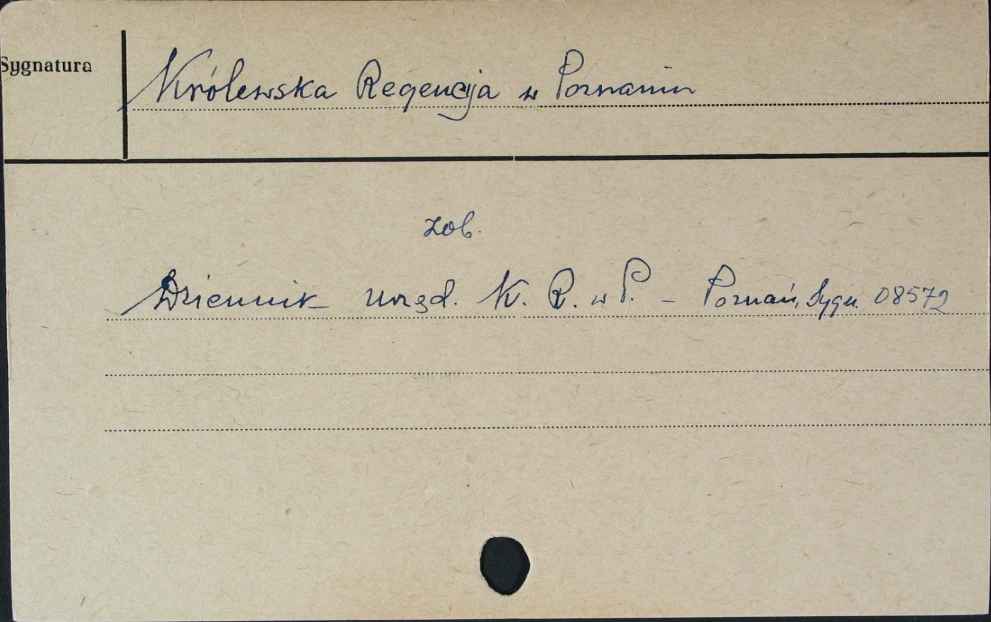 Sygnatura
Królewska Regencja w Poznaniu
zob.
Dziennik urzęd. K. R. w P. - Poznań, Sygn. 08572